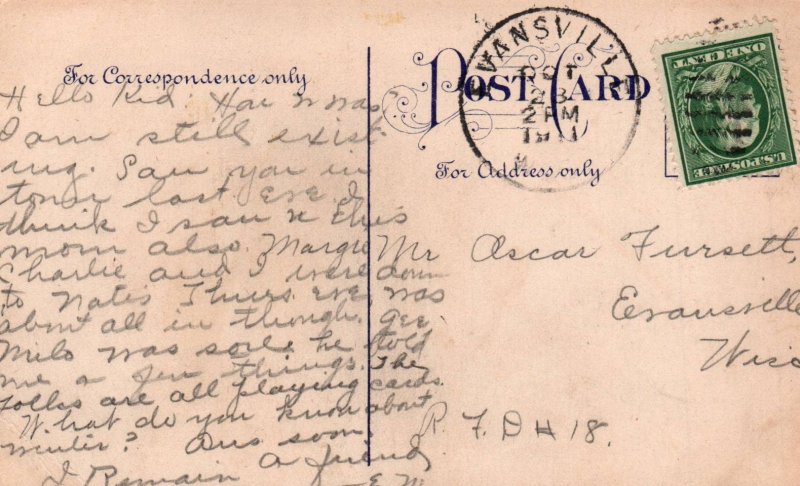 For Correspondence only
POST CARD
For Address only
EVANSVILLE
OCT
28
2 PM
1911
ONE CENT
U.S. POSTAGE
Hello Kid. How
I am still exist
ing. Saw you in
town last Eve. I
think I saw u this
morn also. Margie
Charlie and I were down
to Nates Thurs. eve. was
about all in though. Gee
Milo was sore he told
me a few things. The
folks are all playing cards.
What do you know about
winter? Ans soon
I Remain a friend
E.M.
Mr Oscar Fursett,
Evansville
Wisc
R.F.D # 18.